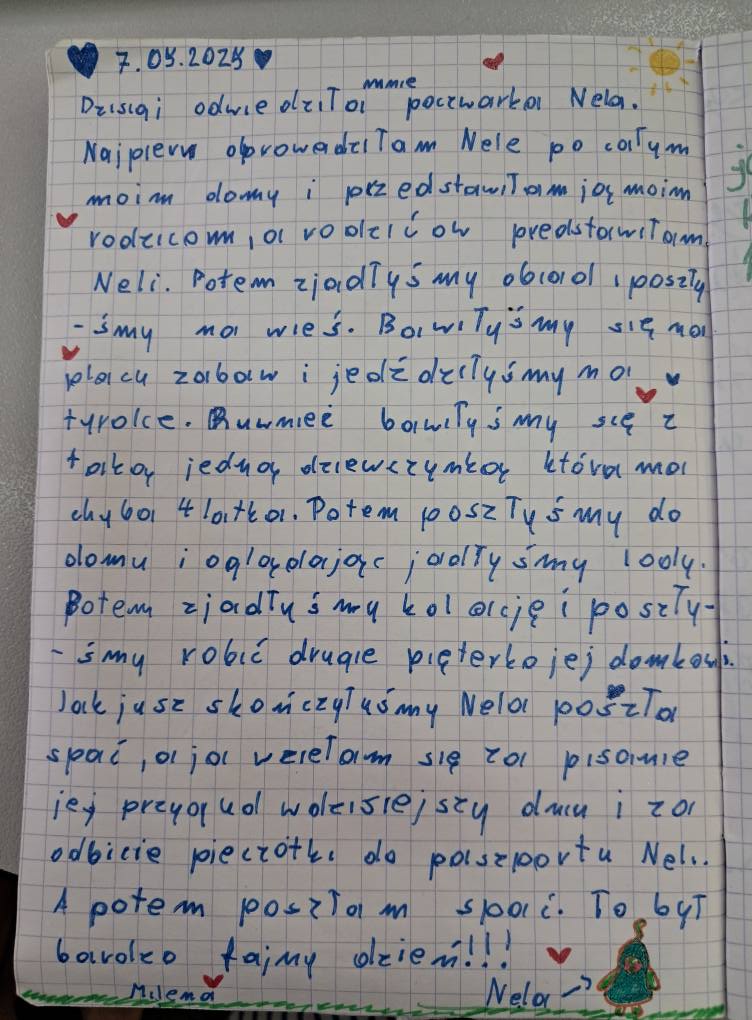 7.05.2025
mnie
Dzisiaj odwiedziła poczwarka Nela.
Najpierw oprowadziłam Nele po całym
moim domy i przedstawiłam ją moim
rodzicom, a rodziców predstawiłam
Neli. Potem zjadłyśmy obiad i poszły
-śmy na wieś. Bawiłyśmy się na
placu zabaw i jedździłyśmy na
tyrolce. Ruwnież bawiłyśmy się z
taką jedną dziewczynką która ma
chyba 4 latka. Potem poszłyśmy do
domu i oglądając jadłyśmy lody.
Potem zjadłyśmy kolację i poszły-
-śmy robić drugie pięterko jej domkowi.
Jak jusz skończyłyśmy Nela poszła
spać, a ja wziełam się za pisanie
jej przygud w dzisiejszy dniu i za
odbicie pieczątki do paszportu Neli.
A potem poszłam spać. To był
bardzo fajny dzień!!!
Milena Nela